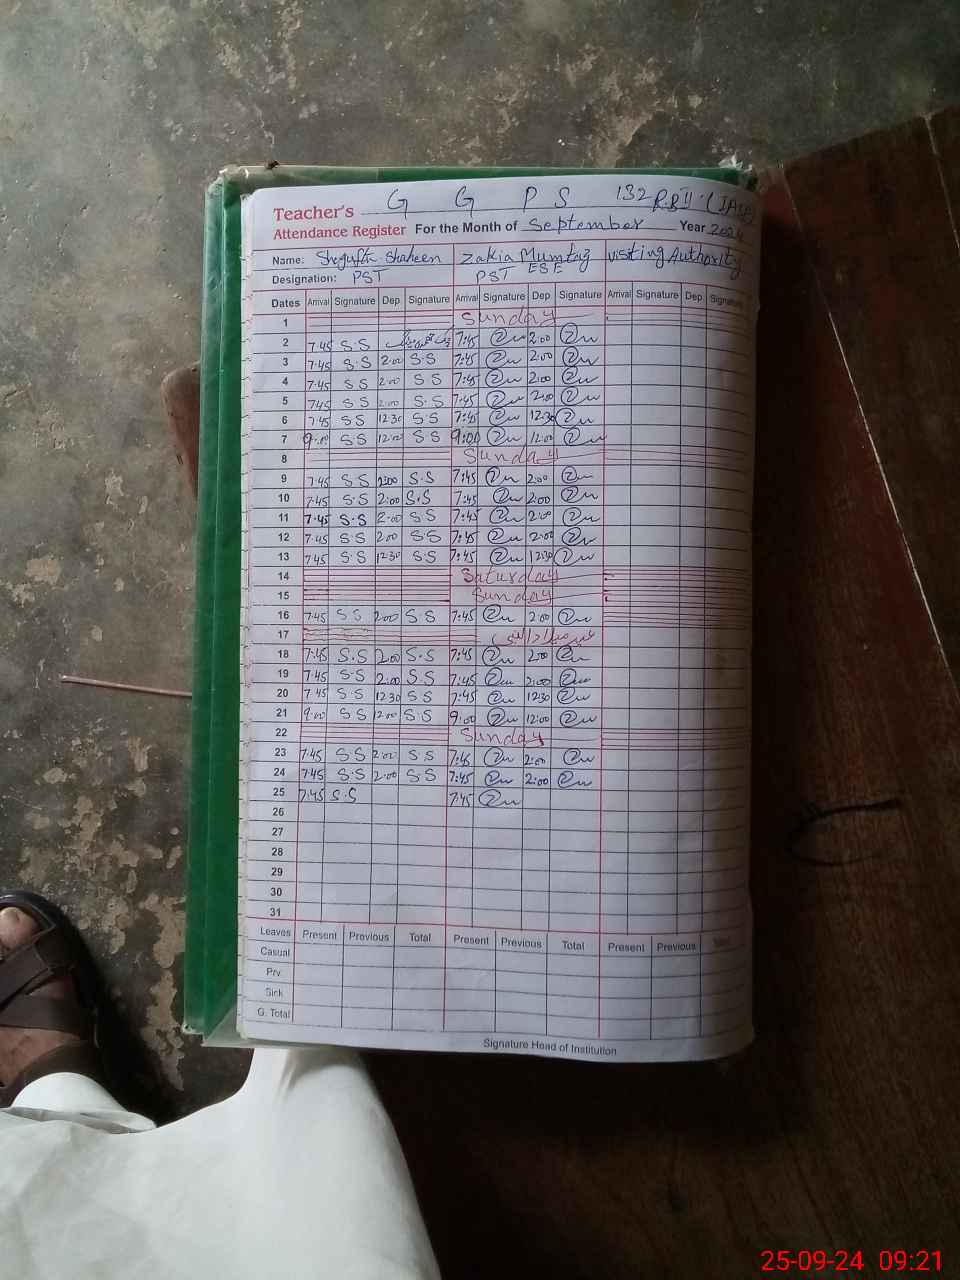 G G P S 132 R.B II
Teacher's
Attendance Register For the Month of September Year 2024
Name: Shaheen Zakia Mumtaz visiting Authority
Designation: PST PST ESE
Dates Arrival Signature Dep. Signature Arrival Signature Dep Signature Arrival Signature Dep Signature
1 Sunday
2 7.45 S.S 7:45 2:00
3 7.45 S.S 2:00 S.S 7:45 2:00
4 7.45 S S 2:00 S S 7:45 2:00
5 7.45 S S 2:00 S.S 7:45 2:00
6 7.45 S S 12.30 S S 7:45 12:30
7 9:00 S S 12:00 S S 9:00 12:00
8 Sunday
9 7.45 S S 2:00 S.S 7:45 2:00
10 7.45 S.S 2:00 S.S 7:45 2:00
11 7.45 S.S 2:00 S S 7:45 2:00
12 7.45 S S 2:00 S.S 7:45 2:00
13 7.45 S S 12:30 S.S 7:45 12:30
14 Saturday
15 Sunday
16 7.45 S S 2:00 S S 7:45 2:00
17
18 7.45 S.S 2:00 S.S 7:45 2:00
19 7.45 S.S 2:00 S S 7:45 2:00
20 7.45 S S 12:30 S S 7:45 12:30
21 9:00 S S 12:00 S.S 9:00 12:00
22 Sunday
23 7.45 S.S 2:00 S.S 7:45 2:00
24 7.45 S.S 2:00 S S 7:45 2:00
25 7.45 S.S 7:45
26
27
28
29
30
31
Leaves Present Previous Total Present Previous Total Present Previous
Casual
Prv.
Sick
G. Total
Signature Head of Institution
25-09-24 09:21